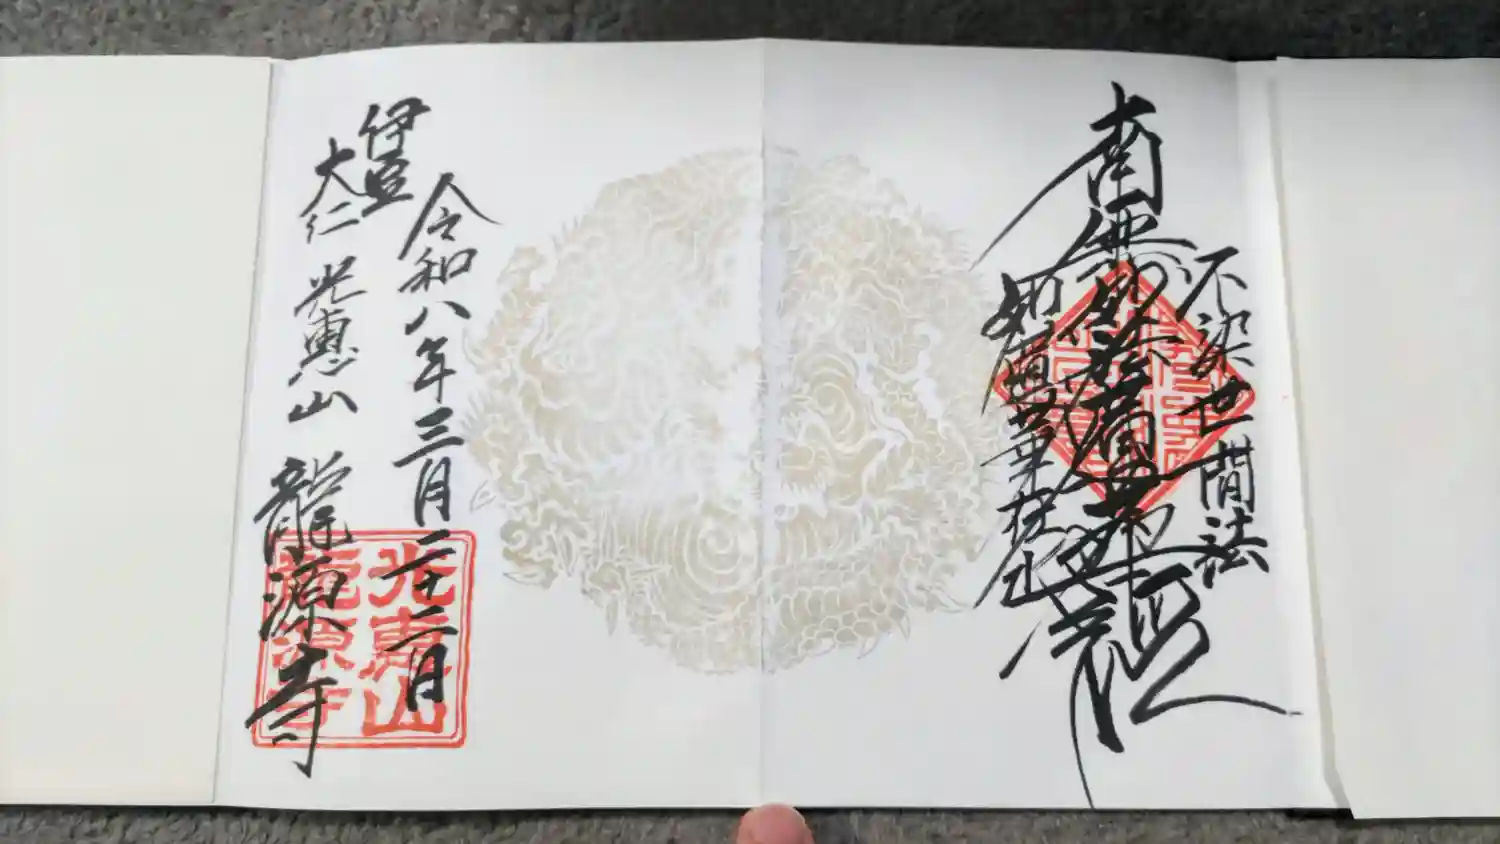 不染世間法
南無妙法蓮華経
如蓮華在水
令和八年三月二十二日
伊豆
大仁 光惠山 龍源寺
光惠山
龍源寺